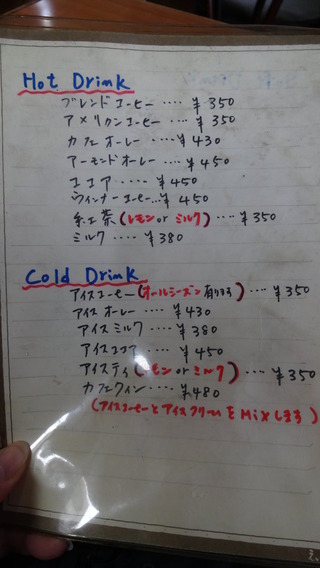 Hot Drink
ブレンドコーヒー ‥‥ ¥350
アメリカンコーヒー ‥‥ ¥350
カフェオーレー ‥‥ ¥430
アーモンドオーレー ‥‥ ¥450
ココア ‥‥ ¥450
ウィンナーコーヒー ‥‥ ¥450
紅茶(レモン or ミルク) ‥‥ ¥350
ミルク ‥‥ ¥380
Cold Drink
アイスコーヒー(オールシーズン有ります) ‥‥ ¥350
アイスオーレー ‥‥ ¥430
アイスミルク ‥‥ ¥380
アイスココア ‥‥ ¥450
アイスティ(レモン or ミルク) ‥‥ ¥350
カフェクイン ‥‥ ¥480
(アイスコーヒーとアイスクリームをMixします)